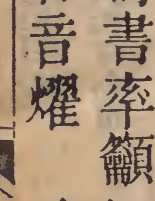 書率籲
音燿